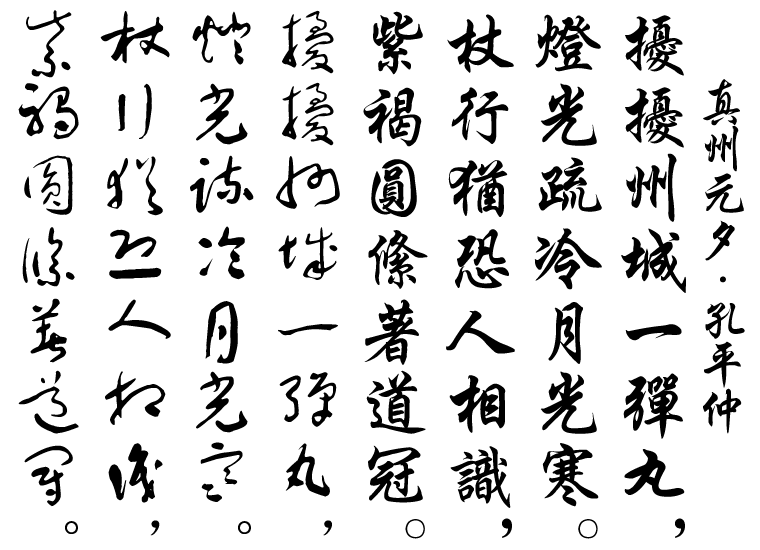 真州元夕·孔平仲
擾擾州城一彈丸，
燈光疏冷月光寒。
杖行猶恐人相識，
紫褐圓絛著道冠。
擾擾州城一彈丸，
燈光疏冷月光寒。
杖行猶恐人相識，
紫褐圓絛著道冠。